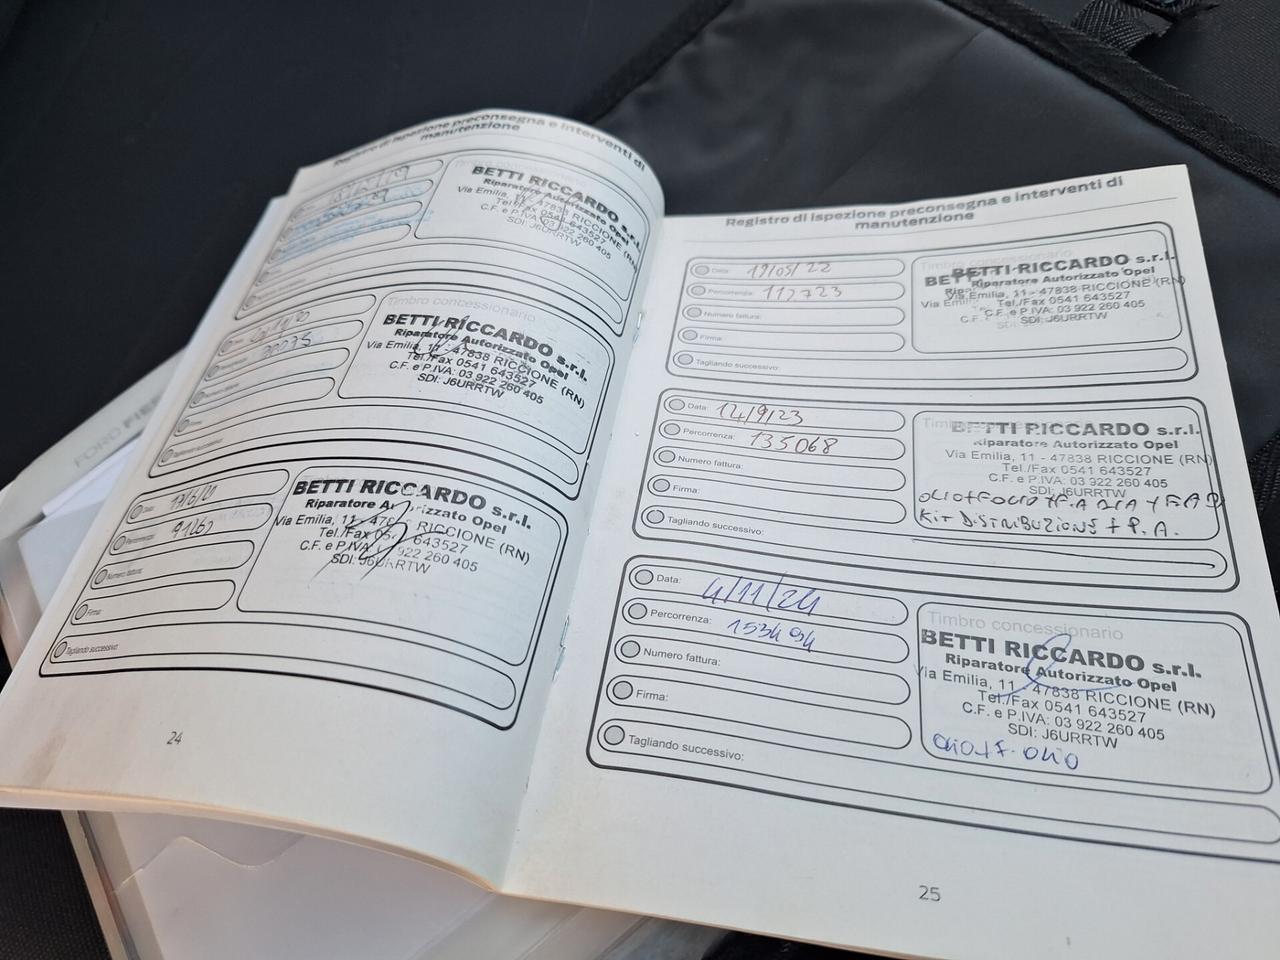 Registro di ispezione preconsegna e interventi di
manutenzione
Timbro concessionario
BETTI RICCARDO s.r.l.
Riparatore Autorizzato Opel
Via Emilia, 11 - 47838 RICCIONE (RN)
Tel./Fax 0541 643527
C.F. e P.IVA: 03 922 260 405
SDI: J6URRTW
Timbro concessionario
BETTI RICCARDO s.r.l.
Riparatore Autorizzato Opel
Via Emilia, 11 - 47838 RICCIONE (RN)
Tel./Fax 0541 643527
C.F. e P.IVA: 03 922 260 405
SDI: J6URRTW
Numero fattura:
Firma:
Tagliando successivo:
Data: 17/6/21
Percorrenza: 91260
Numero fattura:
Firma:
Tagliando successivo:
BETTI RICCARDO s.r.l.
Riparatore Autorizzato Opel
Via Emilia, 11 - 47838 RICCIONE (RN)
Tel./Fax 0541 643527
C.F. e P.IVA: 03 922 260 405
SDI: J6URRTW
24
Registro di ispezione preconsegna e interventi di
manutenzione
Data: 19/05/22
Percorrenza: 112723
Numero fattura:
Firma:
Tagliando successivo:
Timbro concessionario
BETTI RICCARDO s.r.l.
Riparatore Autorizzato Opel
Via Emilia, 11 - 47838 RICCIONE (RN)
Tel./Fax 0541 643527
C.F. e P.IVA: 03 922 260 405
SDI: J6URRTW
Data: 12/9/23
Percorrenza: 135068
Numero fattura:
Firma:
Tagliando successivo:
BETTI RICCARDO s.r.l.
Riparatore Autorizzato Opel
Via Emilia, 11 - 47838 RICCIONE (RN)
Tel./Fax 0541 643527
C.F. e P.IVA: 03 922 260 405
SDI: J6URRTW
KIT DISTRIBUZIONE + P.A.
Data: 4/11/24
Percorrenza: 153494
Numero fattura:
Firma:
Tagliando successivo:
Timbro concessionario
BETTI RICCARDO s.r.l.
Riparatore Autorizzato Opel
Via Emilia, 11 - 47838 RICCIONE (RN)
Tel./Fax 0541 643527
C.F. e P.IVA: 03 922 260 405
SDI: J6URRTW
OLIO+F.OLIO
25